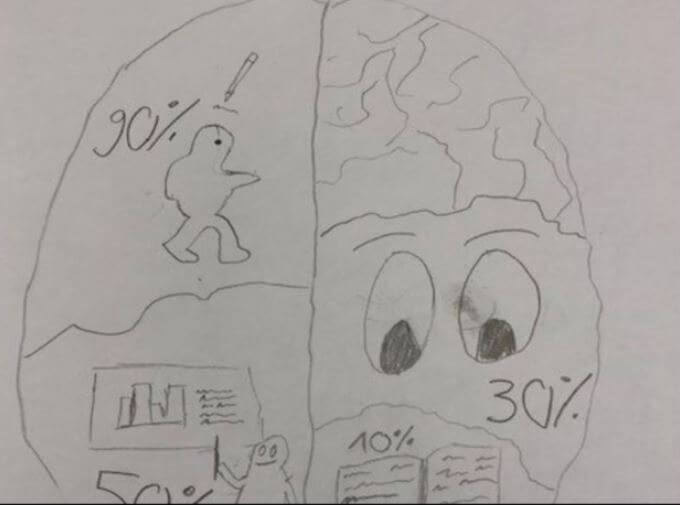 90%
30%
10%
50%